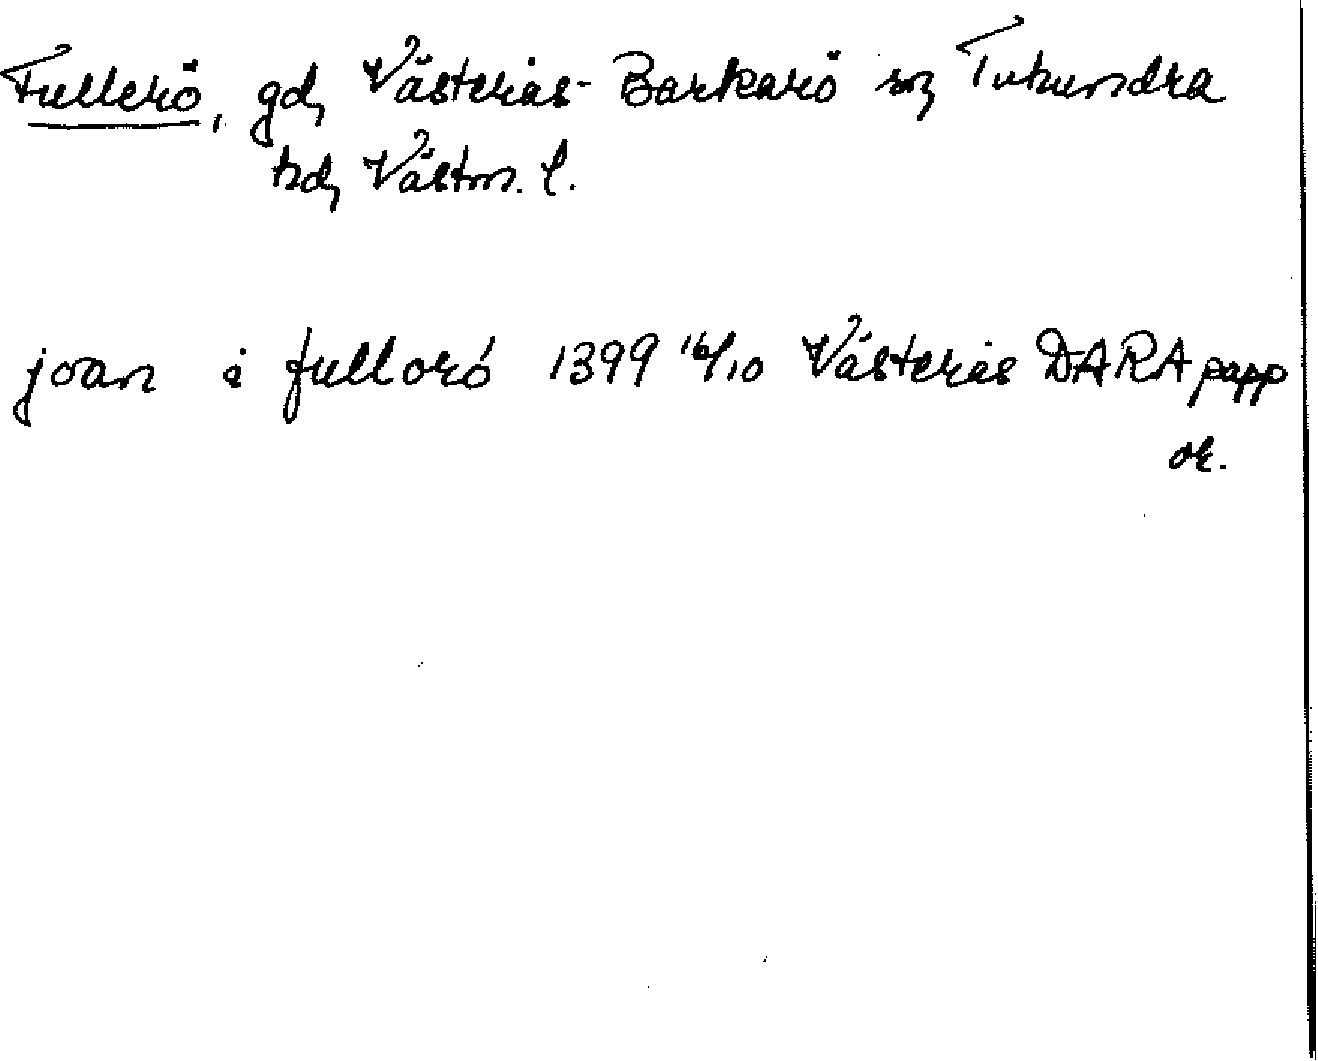 Fullerö, gd, Västerås-Barkarö sn, Tuhundra
hd, Västm. l.
joan i fulloró 1399 16/10 Västerås DARA papp
or.